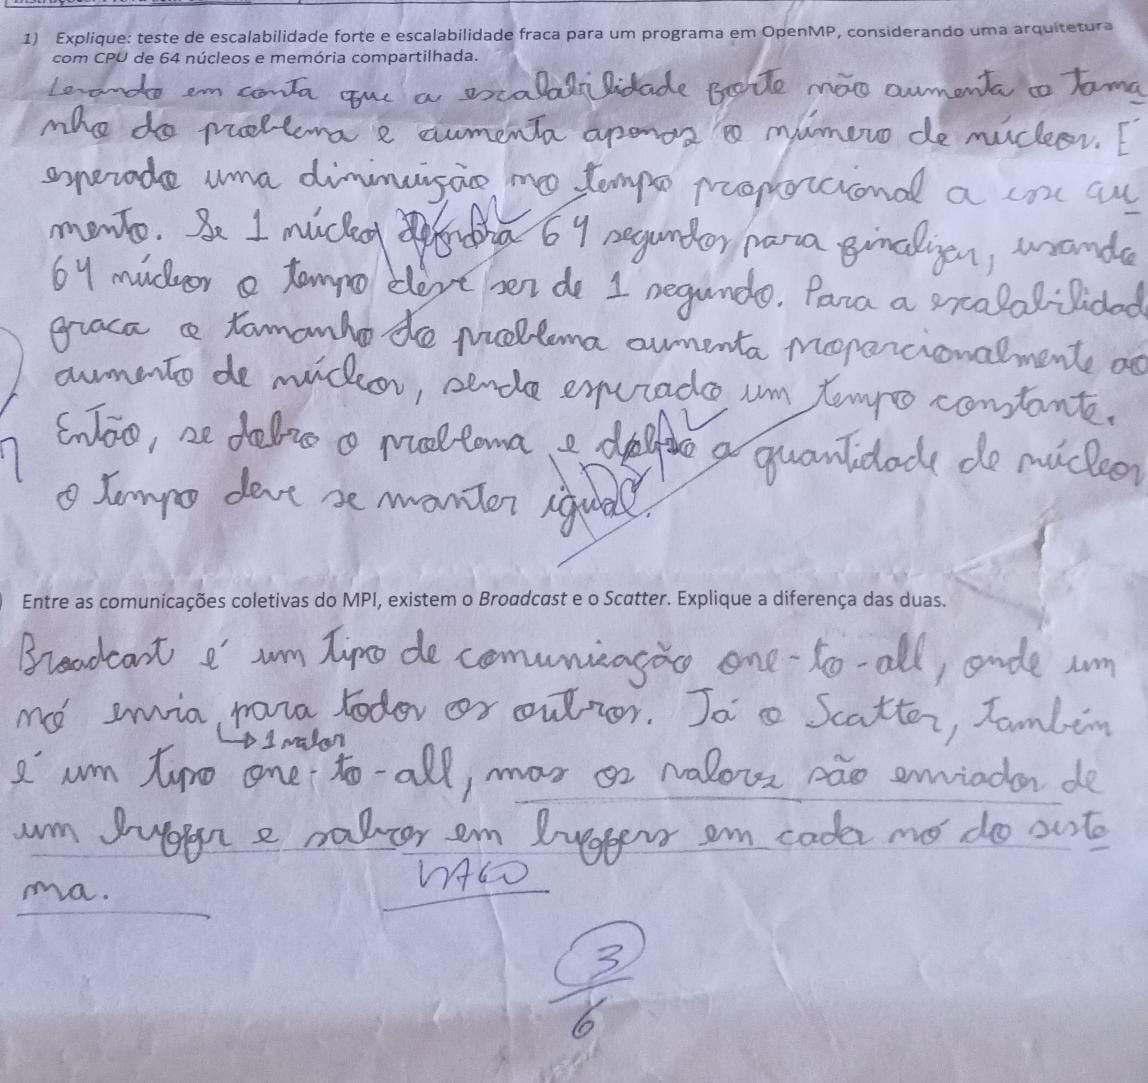 1) Explique: teste de escalabilidade forte e escalabilidade fraca para um programa em OpenMP, considerando uma arquitetura
com CPU de 64 núcleos e memória compartilhada.
Levando em conta que a escalabilidade forte não aumenta o tama
nho do problema e aumenta apenas o número de núcleos. É
esperado uma diminuição no tempo proporcional a esse au
mento. Se 1 núcleo 64 segundos para finalizar, usando
64 núcleos o tempo deve ser de 1 segundo. Para a escalabilidad
fraca o tamanho do problema aumenta proporcionalmente ao
aumento de núcleos, sendo esperado um tempo constante.
Então, se dobro o problema e dobro a quantidade de núcleos
o tempo deve se manter igual.
Entre as comunicações coletivas do MPI, existem o Broadcast e o Scatter. Explique a diferença das duas.
Broadcast é um tipo de comunicação one-to-all, onde um
nó envia para todos os outros. Já o Scatter, também
↳ 1 valor
é um tipo one-to-all, mas os valores são enviados de
um buffer e salvos em buffers em cada nó do siste
ma.
3
6